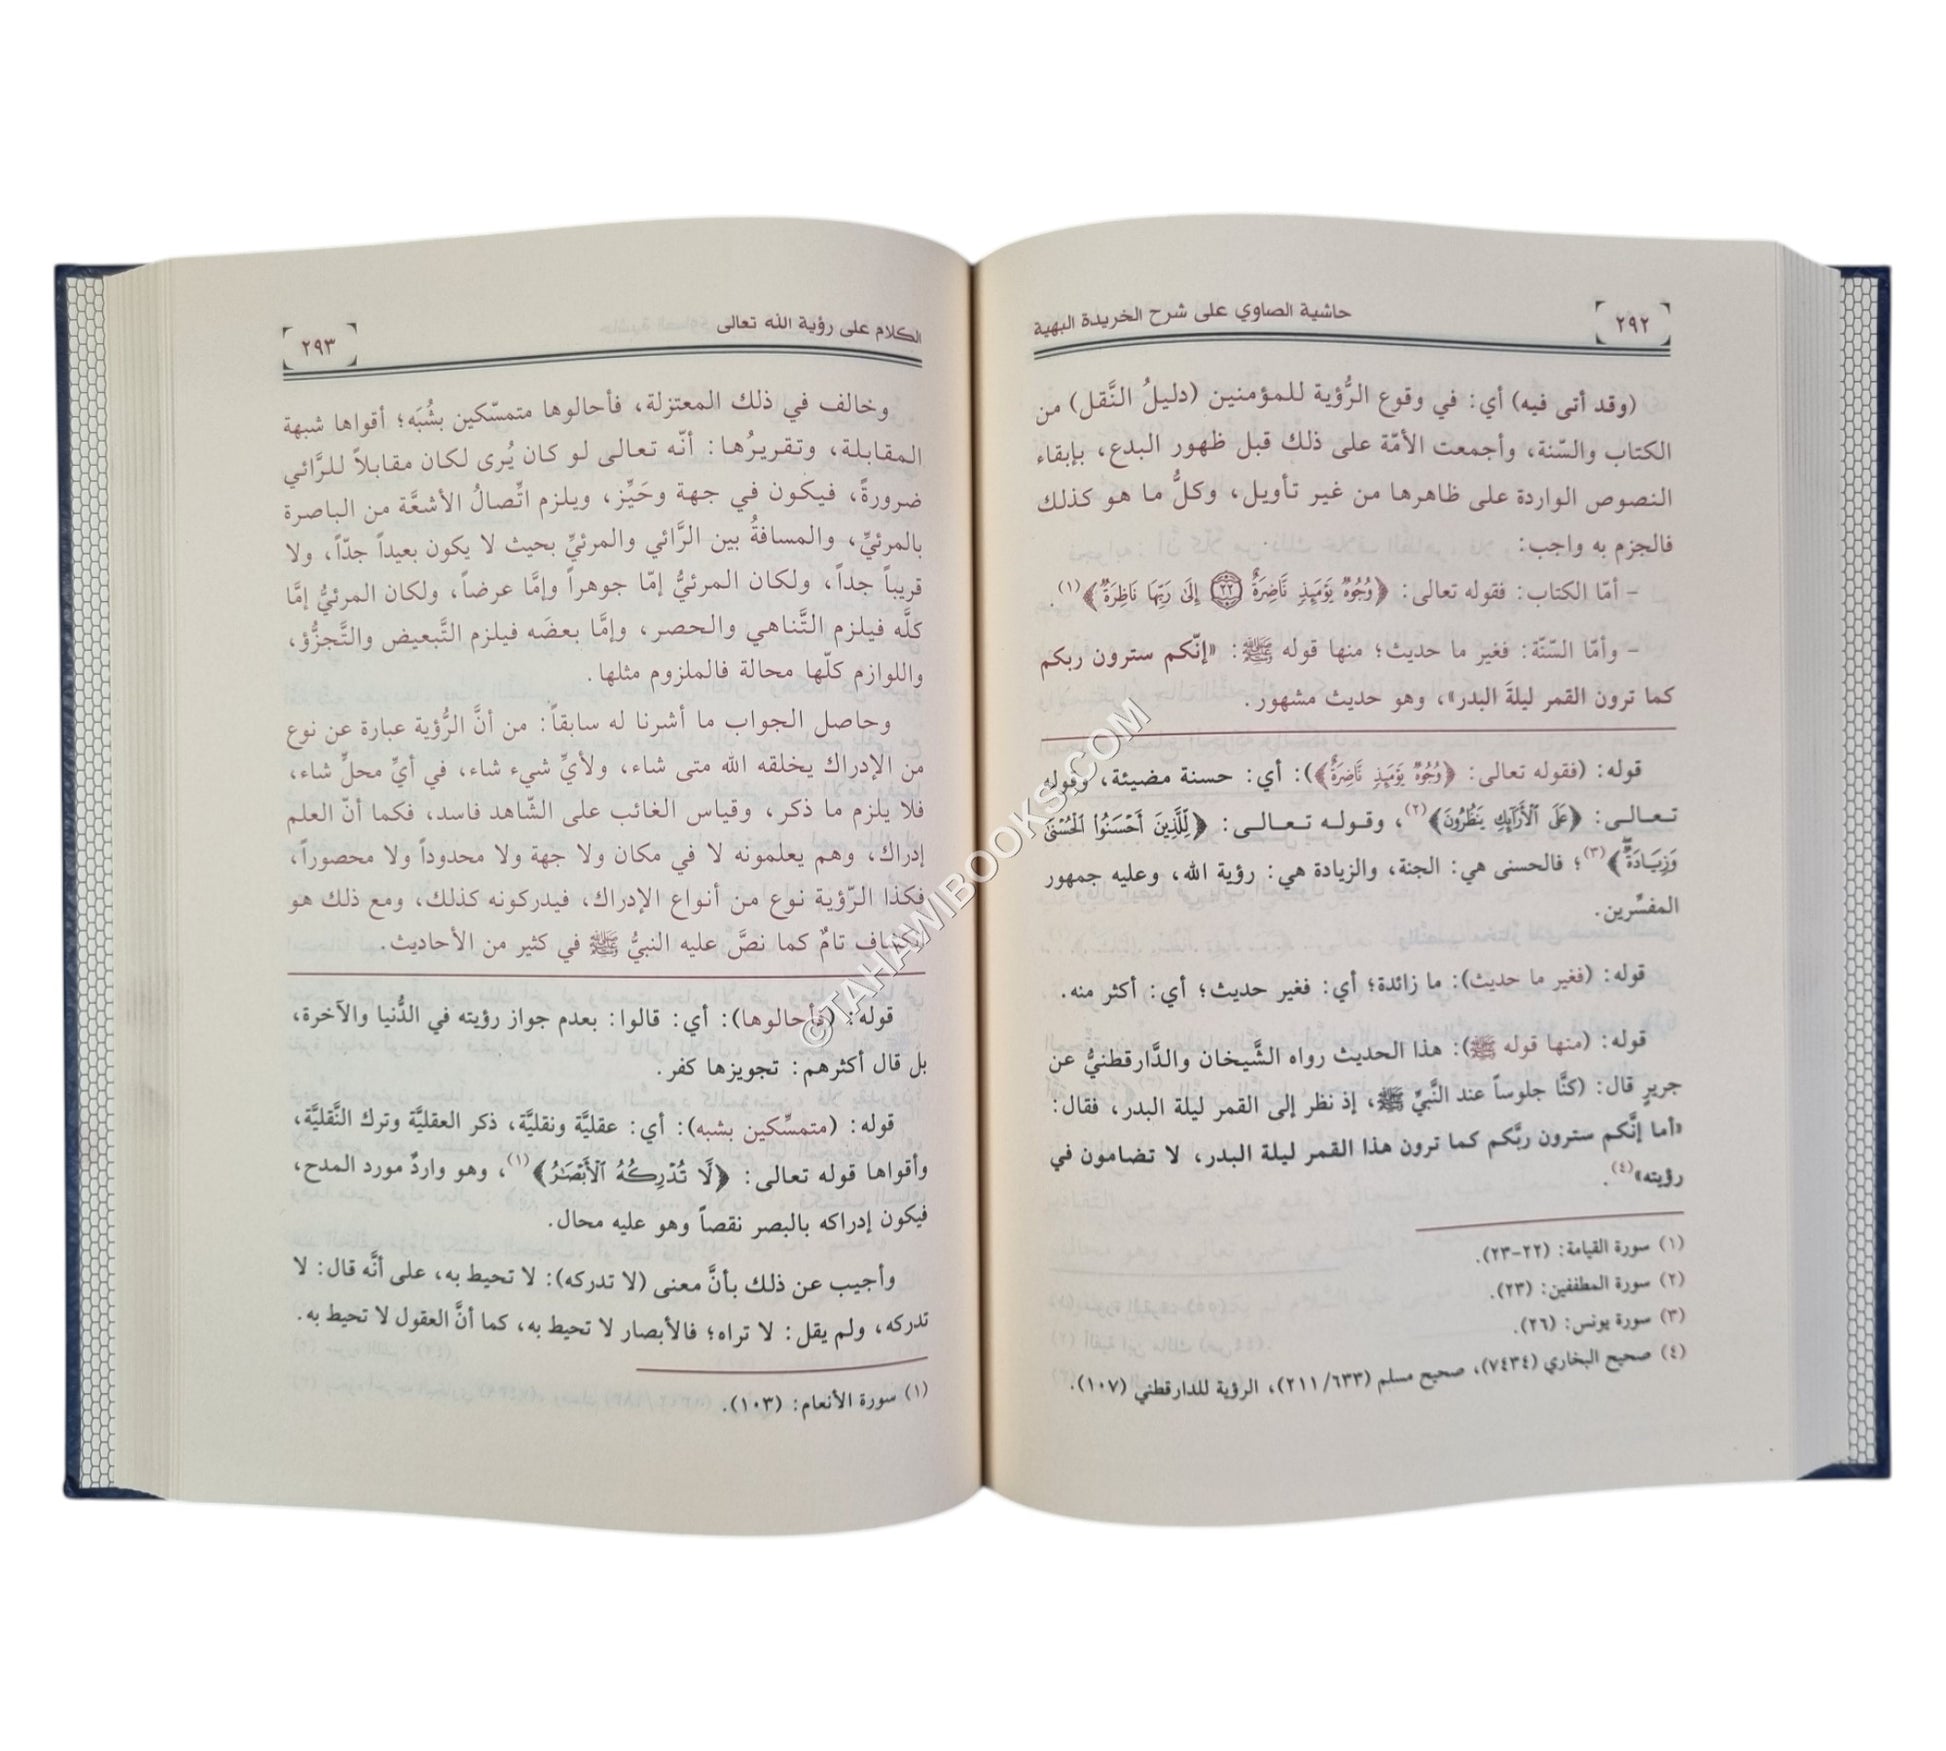 ٢٩٢
حاشية الصاوي على شرح الخريدة البهية
(وقد أتى فيه) أي: في وقوع الرُّؤية للمؤمنين (دليلُ النَّقل) من
الكتاب والسّنة، وأجمعت الأمّة على ذلك قبل ظهور البدع، بإبقاء
النصوص الواردة على ظاهرها من غير تأويل، وكلُّ ما هو كذلك
فالجزم به واجب:
- أمّا الكتاب: فقوله تعالى: ﴿وُجُوهٌ يَوْمَئِذٍ نَّاضِرَةٌ ٢٢ إِلَى رَبِّهَا نَاظِرَةٌ﴾(١).
- وأمّا السّنّة: فغير ما حديث؛ منها قوله ﷺ: «إنّكم سترون ربكم
كما ترون القمر ليلةَ البدر»، وهو حديث مشهور.
قوله: (فقوله تعالى: ﴿وُجُوهٌ يَوْمَئِذٍ نَّاضِرَةٌ﴾): أي: حسنة مضيئة، وقوله
تعالى: ﴿عَلَى ٱلْأَرَآئِكِ يَنظُرُونَ﴾(٢)، وقوله تعالى: ﴿لِّلَّذِينَ أَحْسَنُوا۟ ٱلْحُسْنَىٰ
وَزِيَادَةٌ﴾(٣)؛ فالحسنى هي: الجنة، والزيادة هي: رؤية الله، وعليه جمهور
المفسِّرين.
قوله: (فغير ما حديث): ما زائدة؛ أي: فغير حديث؛ أي: أكثر منه.
قوله: (منها قوله ﷺ): هذا الحديث رواه الشَّيخان والدَّارقطنيُّ عن
جريرٍ قال: (كنَّا جلوساً عند النَّبيِّ ﷺ، إذ نظر إلى القمر ليلة البدر، فقال:
«أما إنَّكم سترون ربَّكم كما ترون هذا القمر ليلة البدر، لا تضامون في
رؤيته»(٤).
(١) سورة القيامة: (٢٢-٢٣).
(٢) سورة المطففين: (٢٣).
(٣) سورة يونس: (٢٦).
(٤) صحيح البخاري (٧٤٣٤)، صحيح مسلم (٢١١/٦٣٣)، الرؤية للدارقطني (١٠٧).
الكلام على رؤية الله تعالى
٢٩٣
وخالف في ذلك المعتزلة، فأحالوها متمسّكين بشُبَه؛ أقواها شبهة
المقابلة، وتقريرُها: أنّه تعالى لو كان يُرى لكان مقابلاً للرَّائي
ضرورةً، فيكون في جهة وحَيِّز، ويلزم اتِّصالُ الأشعَّة من الباصرة
بالمرئيِّ، والمسافةُ بين الرَّائي والمرئيِّ بحيث لا يكون بعيداً جدّاً، ولا
قريباً جداً، ولكان المرئيُّ إمّا جوهراً وإمَّا عرضاً، ولكان المرئيُّ إمَّا
كلَّه فيلزم التَّناهي والحصر، وإمَّا بعضَه فيلزم التَّبعيض والتَّجزُّؤ،
واللوازم كلّها محالة فالملزوم مثلها.
وحاصل الجواب ما أشرنا له سابقاً: من أنَّ الرُّؤية عبارة عن نوع
من الإدراك يخلقه الله متى شاء، ولأيِّ شيء شاء، في أيِّ محلٍّ شاء،
فلا يلزم ما ذكر، وقياس الغائب على الشّاهد فاسد، فكما أنّ العلم
إدراك، وهم يعلمونه لا في مكان ولا جهة ولا محدوداً ولا محصوراً،
فكذا الرّؤية نوع من أنواع الإدراك، فيدركونه كذلك، ومع ذلك هو
انكشاف تامٌ كما نصَّ عليه النبيُّ ﷺ في كثير من الأحاديث.
قوله: (فأحالوها): أي: قالوا: بعدم جواز رؤيته في الدُّنيا والآخرة،
بل قال أكثرهم: تجويزها كفر.
قوله: (متمسِّكين بشبه): أي: عقليَّة ونقليَّة، ذكر العقليَّة وترك النَّقليَّة،
وأقواها قوله تعالى: ﴿لَّا تُدْرِكُهُ ٱلْأَبْصَٰرُ﴾(١)، وهو واردٌ مورد المدح،
فيكون إدراكه بالبصر نقصاً وهو عليه محال.
وأجيب عن ذلك بأنَّ معنى (لا تدركه): لا تحيط به، على أنَّه قال: لا
تدركه، ولم يقل: لا تراه؛ فالأبصار لا تحيط به، كما أنَّ العقول لا تحيط به.
(١) سورة الأنعام: (١٠٣).
©TAHAWIBOOKS.COM